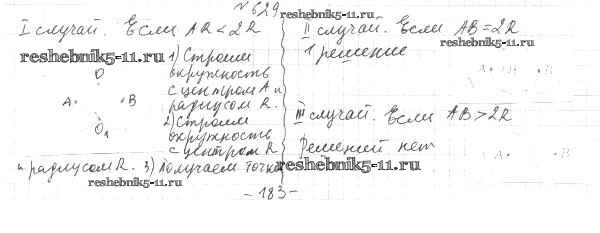 № 629
I случай. Если AR < 2R
reshebnik5-11.ru
1) Строим
окружность
с центром A и
радиусом R.
2) Строим
окружность
с центром R
и радиусом R. 3) Получаем точка
O
A B
O₁
reshebnik5-11.ru
reshebnik5-11.ru
II случай. Если AB = 2R
reshebnik5-11.ru
1 решение
A B
III случай. Если AB > 2R
Решений нет
reshebnik5-11.ru
A B
- 183 -